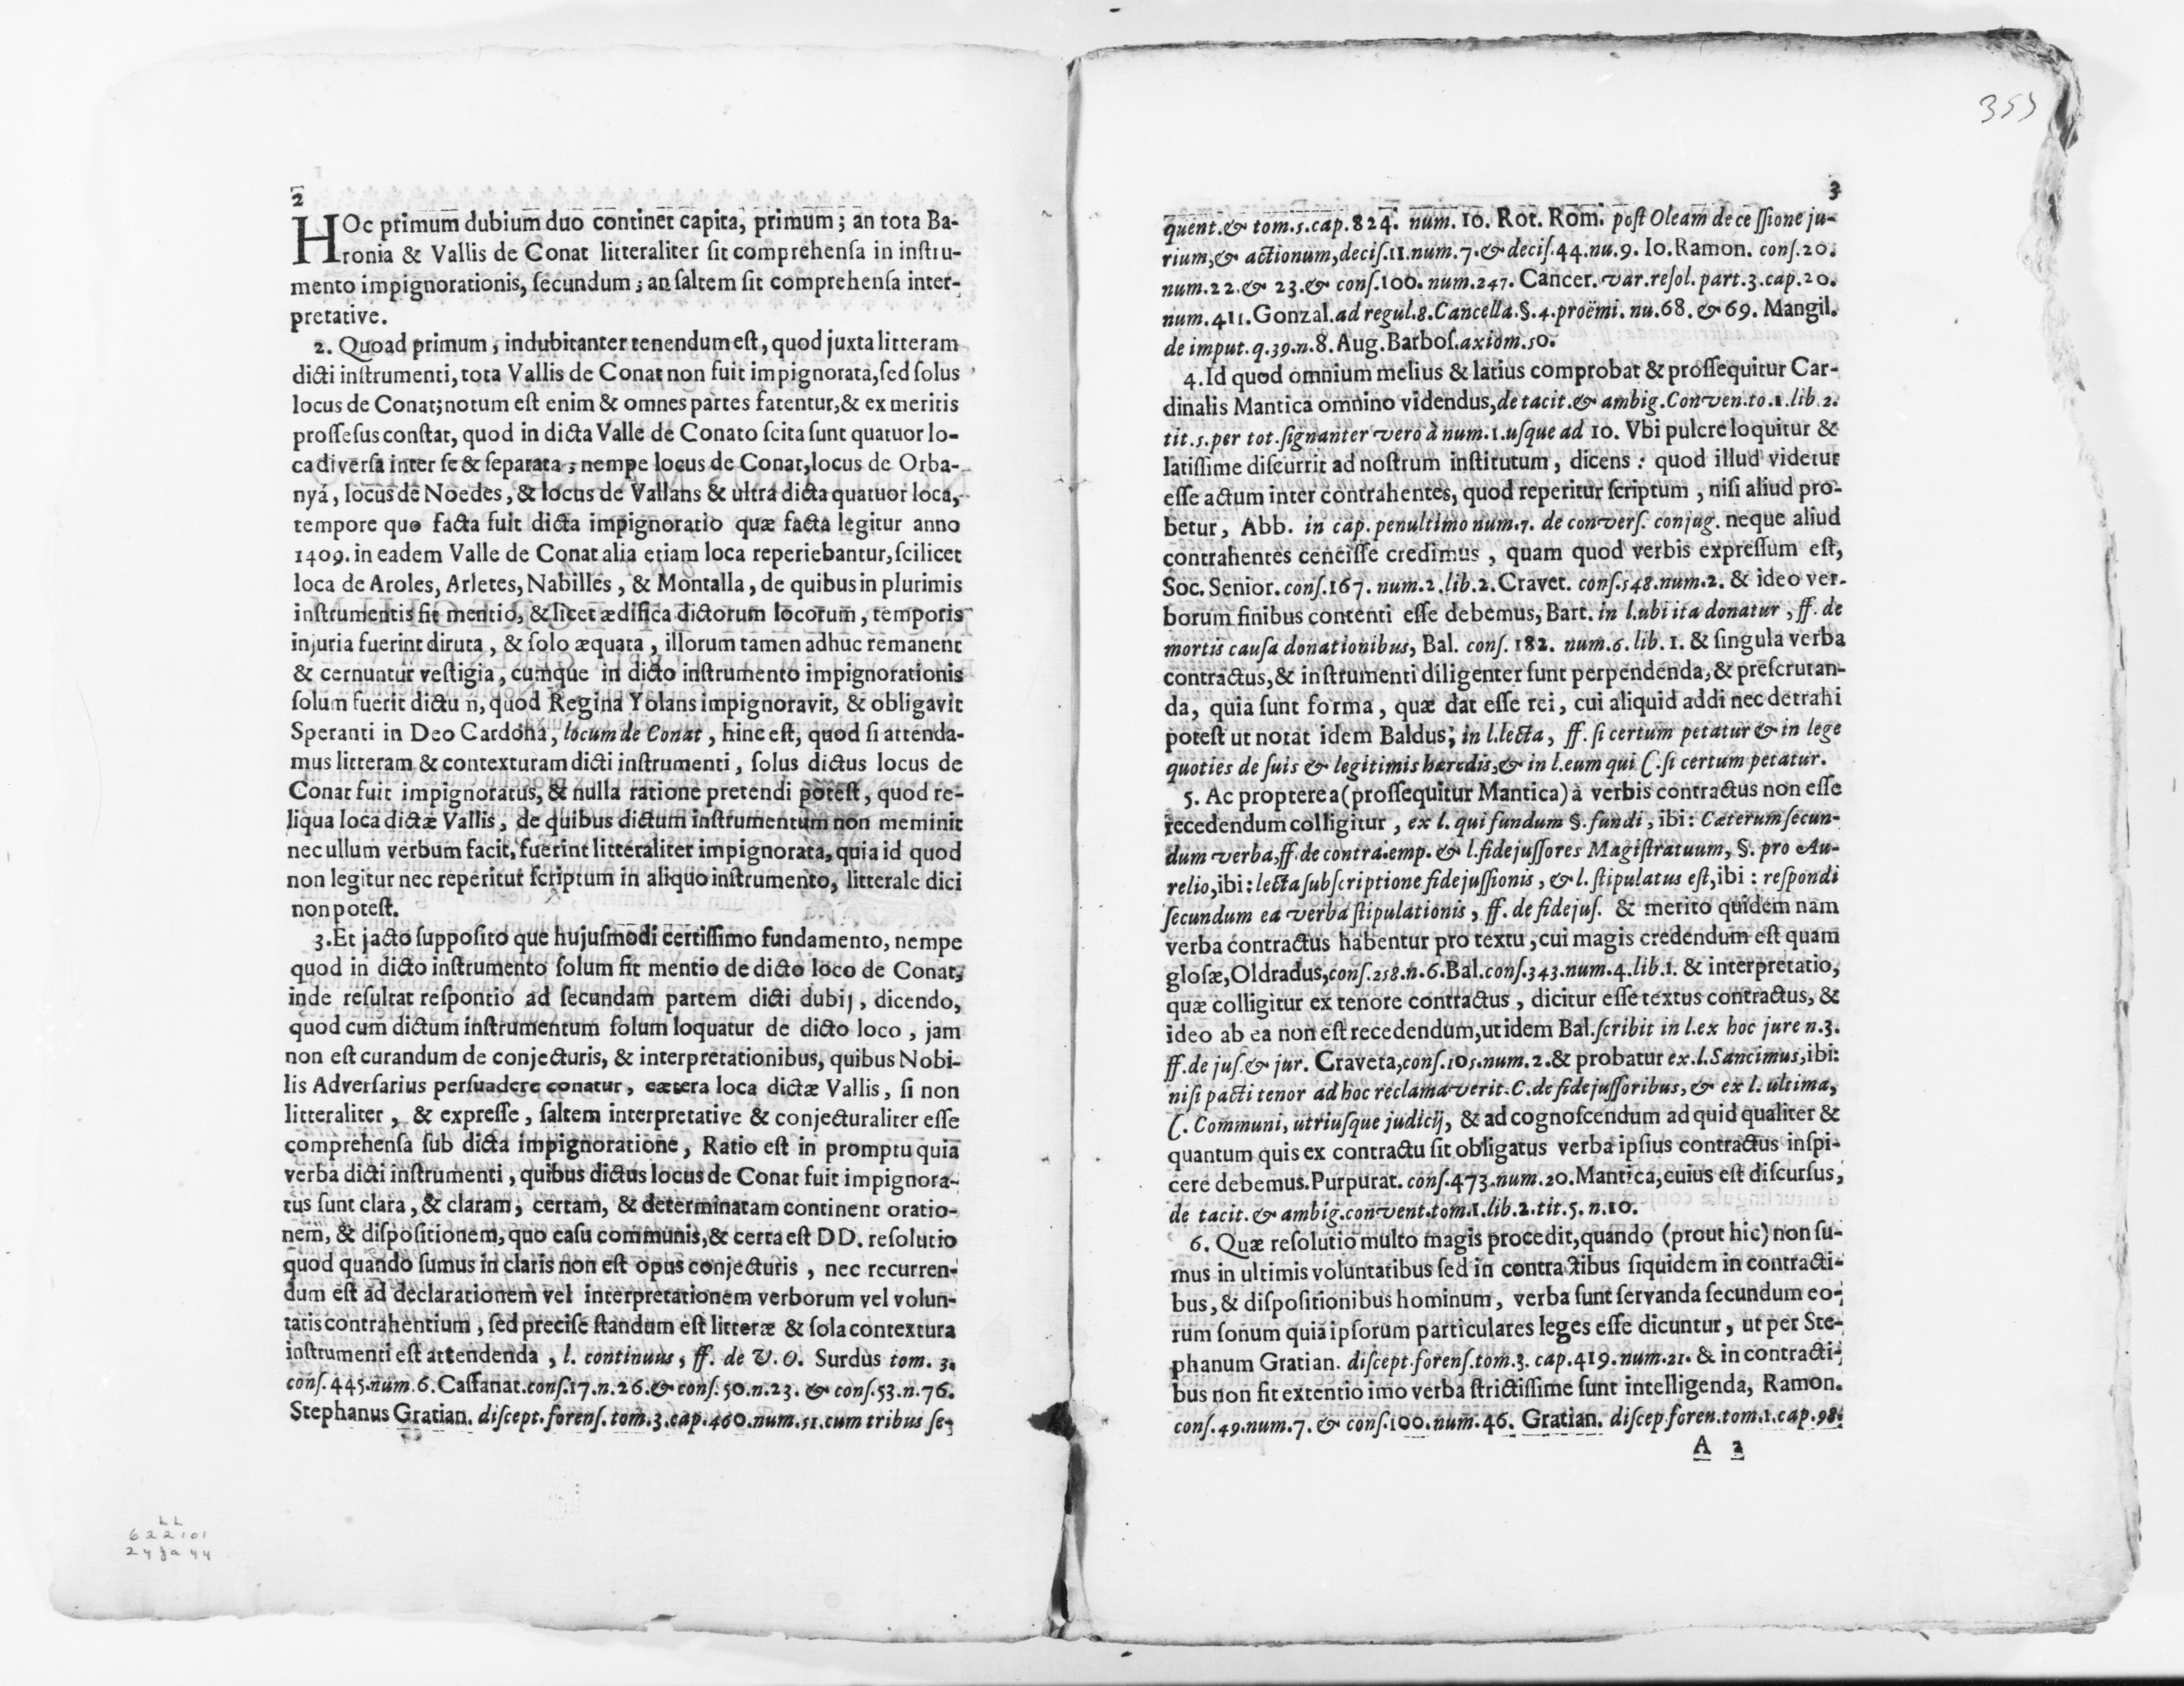 2
HOc primum dubium duo continet capita, primum; an tota Ba-
ronia & Vallis de Conat litteraliter sit comprehensa in instru-
mento impignorationis, secundum; an saltem sit comprehensa inter-
pretative.
2. Quoad primum, indubitanter tenendum est, quod juxta litteram
dicti instrumenti, tota Vallis de Conat non fuit impignorata, sed solus
locus de Conat; notum est enim & omnes partes fatentur, & ex meritis
prossesus constat, quod in dicta Valle de Conato scita sunt quatuor lo-
ca diversa inter se & separata; nempe locus de Conat, locus de Orba-
nyá, locus de Noedes, & locus de Vallans & ultra dicta quatuor loca,
tempore quo facta fuit dicta impignoratio quæ facta legitur anno
1409. in eadem Valle de Conat alia etiam loca reperiebantur, scilicet
loca de Aroles, Arletes, Nabilles, & Montalla, de quibus in plurimis
instrumentis fit mentio, & licet ædifica dictorum locorum, temporis
injuria fuerint diruta, & solo æquata, illorum tamen adhuc remanent
& cernuntur vestigia, cumque in dicto instrumento impignorationis
solum fuerit dictu n, quod Regina Yolans impignoravit, & obligavit
Speranti in Deo Cardona, locum de Conat, hinc est, quod si attenda-
mus litteram & contexturam dicti instrumenti, solus dictus locus de
Conat fuit impignoratus, & nulla ratione pretendi potest, quod re-
liqua loca dictæ Vallis, de quibus dictum instrumentum non meminit
nec ullum verbum facit, fuerint litteraliter impignorata, quia id quod
non legitur nec reperitur scriptum in aliquo instrumento, litterale dici
non potest.
3. Et jacto supposito que hujusmodi certissimo fundamento, nempe
quod in dicto instrumento solum fit mentio de dicto loco de Conat,
inde resultat respontio ad secundam partem dicti dubij, dicendo,
quod cum dictum instrumentum solum loquatur de dicto loco, jam
non est curandum de conjecturis, & interpretationibus, quibus Nobi-
lis Adversarius persuadere conatur, cætera loca dictæ Vallis, si non
litteraliter, & expresse, saltem interpretative & conjecturaliter esse
comprehensa sub dicta impignoratione, Ratio est in promptu quia
verba dicti instrumenti, quibus dictus locus de Conat fuit impignora-
tus sunt clara, & claram, certam, & determinatam continent oratio-
nem, & dispositionem, quo casu communis, & certa est DD. resolutio
quod quando sumus in claris non est opus conjecturis, nec recurren-
dum est ad declarationem vel interpretationem verborum vel volun-
tatis contrahentium, sed precise standum est litteræ & sola contextura
instrumenti est attendenda, l. continuus, ff. de V. O. Surdus tom. 3.
cons. 445. num. 6. Cassanat. cons. 17. n. 26. & cons. 50. n. 23. & cons. 53. n. 76.
Stephanus Gratian. discept. forens. tom. 3. cap. 460. num. 51. cum tribus se-
3
quent. & tom. 5. cap. 824. num. 10. Rot. Rom. post Oleam de ce ssione ju-
rium, & actionum, decis. 11. num. 7. & decis. 44. nu. 9. Io. Ramon. cons. 20.
num. 22. & 23. & cons. 100. num. 247. Cancer. var. resol. part. 3. cap. 20.
num. 411. Gonzal. ad regul. 8. Cancella. §. 4. proëmi. nu. 68. & 69. Mangil.
de imput. q. 39. n. 8. Aug. Barbos. axiom. 50.
4. Id quod omnium melius & latius comprobat & prossequitur Car-
dinalis Mantica omnino videndus, de tacit. & ambig. Conven. to. 1. lib. 2.
tit. 5. per tot. signanter vero à num. 1. usque ad 10. Vbi pulcre loquitur &
latissime discurrit ad nostrum institutum, dicens: quod illud videtur
esse actum inter contrahentes, quod reperitur scriptum, nisi aliud pro-
betur, Abb. in cap. penultimo num. 7. de convers. conjug. neque aliud
contrahentes cencisse credimus, quam quod verbis expressum est,
Soc. Senior. cons. 167. num. 2. lib. 2. Cravet. cons. 548. num. 2. & ideo ver-
borum finibus contenti esse debemus, Bart. in l. ubi ita donatur, ff. de
mortis causa donationibus, Bal. cons. 182. num. 6. lib. 1. & singula verba
contractus, & instrumenti diligenter sunt perpendenda, & prescrutan-
da, quia sunt forma, quæ dat esse rei, cui aliquid addi nec detrahi
potest ut notat idem Baldus; in l. lecta, ff. si certum petatur & in lege
quoties de suis & legitimis hæredis, & in l. eum qui C. si certum petatur.
5. Ac propterea (prossequitur Mantica) à verbis contractus non esse
recedendum colligitur, ex l. qui fundum §. fundi, ibi: Cæterum secun-
dum verba, ff. de contra. emp. & l. fidejussores Magistratuum, §. pro Au-
relio, ibi: lecta subscriptione fidejussionis, & l. stipulatus est, ibi: respondi
secundum ea verba stipulationis, ff. de fidejus. & merito quidem nam
verba contractus habentur pro textu, cui magis credendum est quam
glosæ, Oldradus, cons. 258. n. 6. Bal. cons. 343. num. 4. lib. 1. & interpretatio,
quæ colligitur ex tenore contractus, dicitur esse textus contractus, &
ideo ab ea non est recedendum, ut idem Bal. scribit in l. ex hoc jure n. 3.
ff. de jus. & jur. Craveta, cons. 105. num. 2. & probatur ex. l. Sancimus, ibi:
nisi pacti tenor ad hoc reclamaverit. C. de fidejussoribus, & ex l. ultima,
C. Communi, utriusque judicij, & ad cognoscendum ad quid qualiter &
quantum quis ex contractu sit obligatus verba ipsius contractus inspi-
cere debemus. Purpurat. cons. 473. num. 20. Mantica, cuius est discursus,
de tacit. & ambig. convent. tom. 1. lib. 2. tit. 5. n. 10.
6. Quæ resolutio multo magis procedit, quando (prout hic) non su-
mus in ultimis voluntatibus sed in contractibus siquidem in contracti-
bus, & dispositionibus hominum, verba sunt servanda secundum eo-
rum sonum quia ipsorum particulares leges esse dicuntur, ut per Ste-
phanum Gratian. discept. forens. tom. 3. cap. 419. num. 21. & in contracti-
bus non fit extentio imo verba strictissime sunt intelligenda, Ramon.
cons. 49. num. 7. & cons. 100. num. 46. Gratian. discep. foren. tom. 1. cap. 98.
A 2
LL
622101
24 ja 44